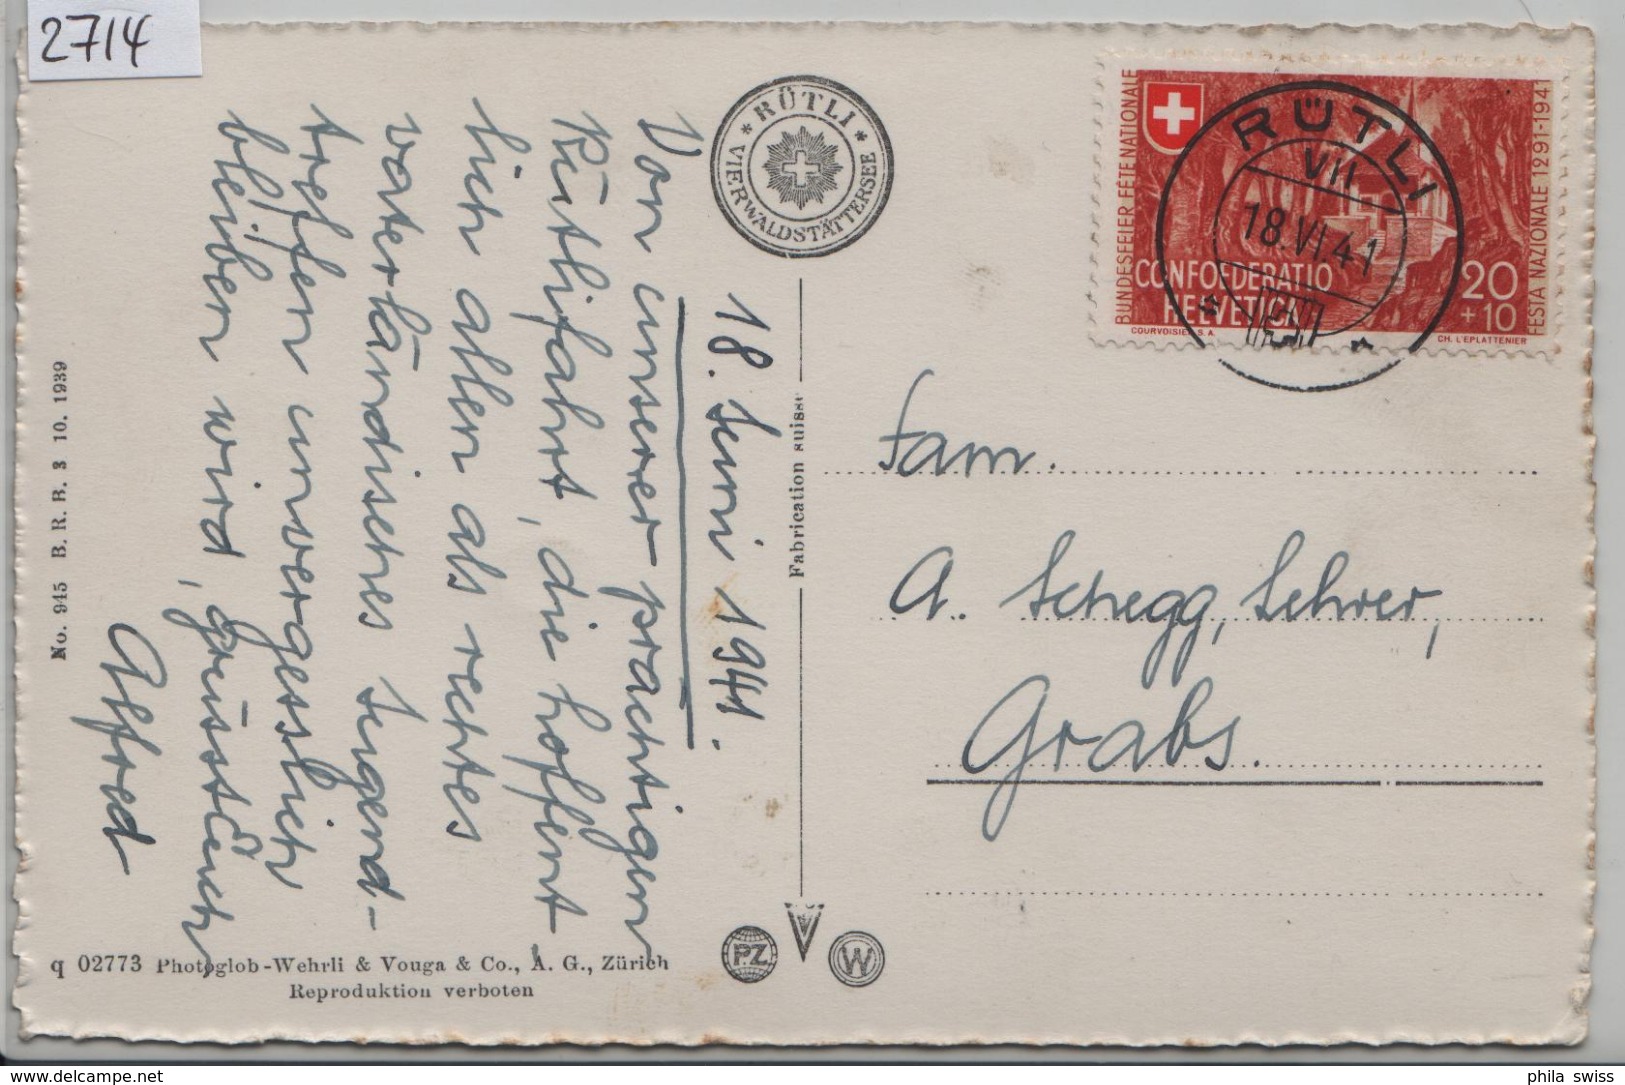 2714
18. Juni 1941.
Von unserer prächtigen
Rütlifahrt, die hoffent-
lich allen als rechtes
vaterländisches Jugend-
treffen unvergesslich
bleiben wird, grüsst Euch
Alfred
* RÜTLI *
VIERWALDSTÄTTERSEE
BUNDESFEIER FÊTE NATIONALE
FESTA NAZIONALE 1291-1941
CONFOEDERATIO
HELVETICA
20
+10
COURVOISIER S.A.
CH. L'EPLATTENIER
RÜTLI
VII
18.VI.41
Fam.
A. Schegg, Lehrer,
Grabs.
Fabrication suisse
No. 945 B. R. B. 3 10. 1939
q 02773 Photoglob-Wehrli & Vouga & Co., A. G., Zürich
Reproduktion verboten
PZ
W
delcampe.net
phila_swiss